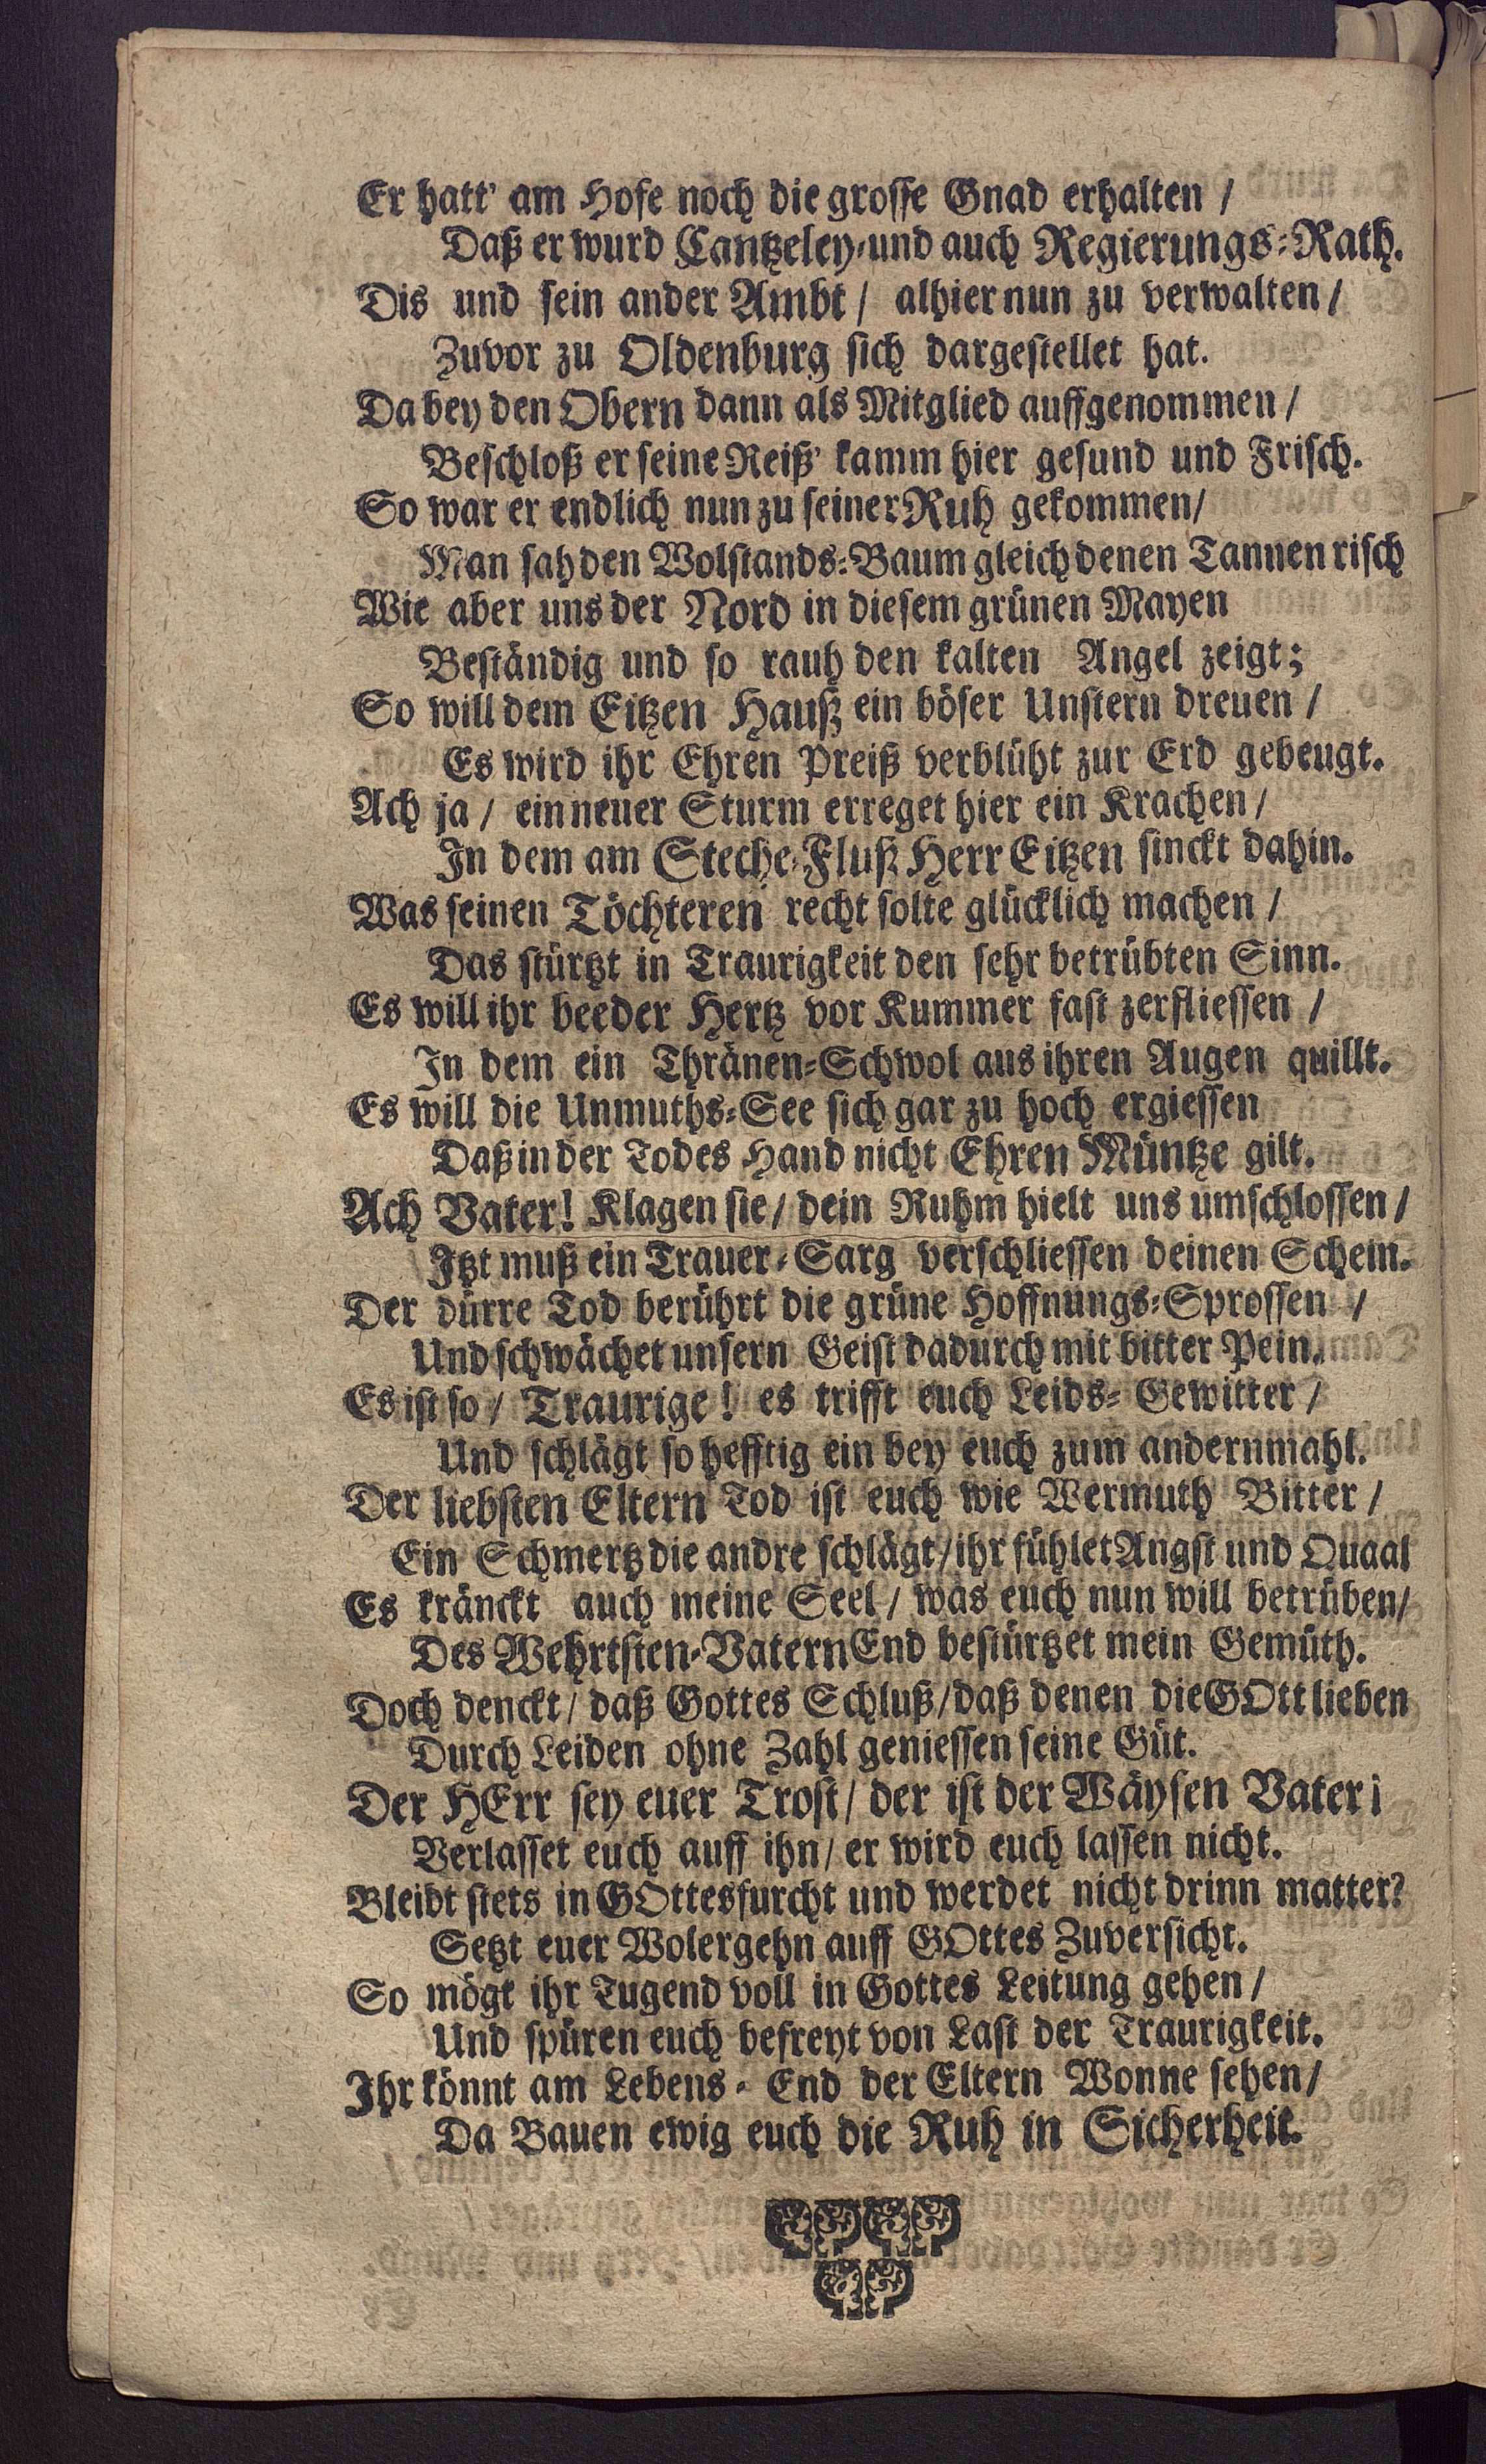 Er hatt' am Hofe noch die grosse Gnad erhalten /
Daß er wurd Cantzeley-und auch Regierungs-Rath.
Dis und sein ander Ambt / alhier nun zu verwalten /
Zuvor zu Oldenburg sich dargestellet hat.
Da bey den Obern dann als Mitglied auffgenommen /
Beschloß er seine Reiß' kamm hier gesund und Frisch.
So war er endlich nun zu seiner Ruh gekommen /
Man sah den Wolstands-Baum gleich denen Tannen risch
Wie aber uns der Nord in diesem grünen Mayen
Beständig und so rauh den kalten Angel zeigt;
So will dem Eitzen Hauß ein böser Unstern dreuen /
Es wird ihr Ehren Preiß verblüht zur Erd gebeugt.
Ach ja / ein neuer Sturm erreget hier ein Krachen /
In dem am Steche-Fluß Herr Eitzen sinckt dahin.
Was seinen Töchteren recht solte glücklich machen /
Das stürtzt in Traurigkeit den sehr betrübten Sinn.
Es will ihr beeder Hertz vor Kummer fast zerfliessen /
In dem ein Thränen-Schwol aus ihren Augen quillt.
Es will die Unmuths-See sich gar zu hoch ergiessen
Daß in der Todes Hand nicht Ehren Müntze gilt.
Ach Vater! Klagen sie / dein Ruhm hielt uns umschlossen /
Itzt muß ein Trauer-Sarg verschliessen deinen Schein.
Der dürre Tod berührt die grüne Hoffnungs-Sprossen /
Und schwächet unsern Geist dadurch mit bitter Pein.
Es ist so / Traurige! es trifft euch Leids-Gewitter /
Und schlägt so hefftig ein bey euch zum andernmahl.
Der liebsten Eltern Tod ist euch wie Wermuth Bitter /
Ein Schmertz die andre schlägt / ihr fühlet Angst und Quaal
Es kränckt auch meine Seel / was euch nun will betrüben /
Des Wehrtsten-Vatern End bestürtzet mein Gemüth.
Doch denckt / daß Gottes Schluß / daß denen die GOtt lieben
Durch Leiden ohne Zahl geniessen seine Güt.
Der HErr sey euer Trost / der ist der Wäysen Vater¡
Verlasset euch auff ihn / er wird euch lassen nicht.
Bleidt stets in GOttesfurcht und werdet nicht drinn matter?
Setzt euer Wolergehn auff GOttes Zuversicht.
So mögt ihr Tugend voll in Gottes Leitung gehen /
Und spüren euch befreyt von Last der Traurigkeit.
Ihr könnt am Lebens-End der Eltern Wonne sehen /
Da Bauen ewig euch die Ruh in Sicherheit.